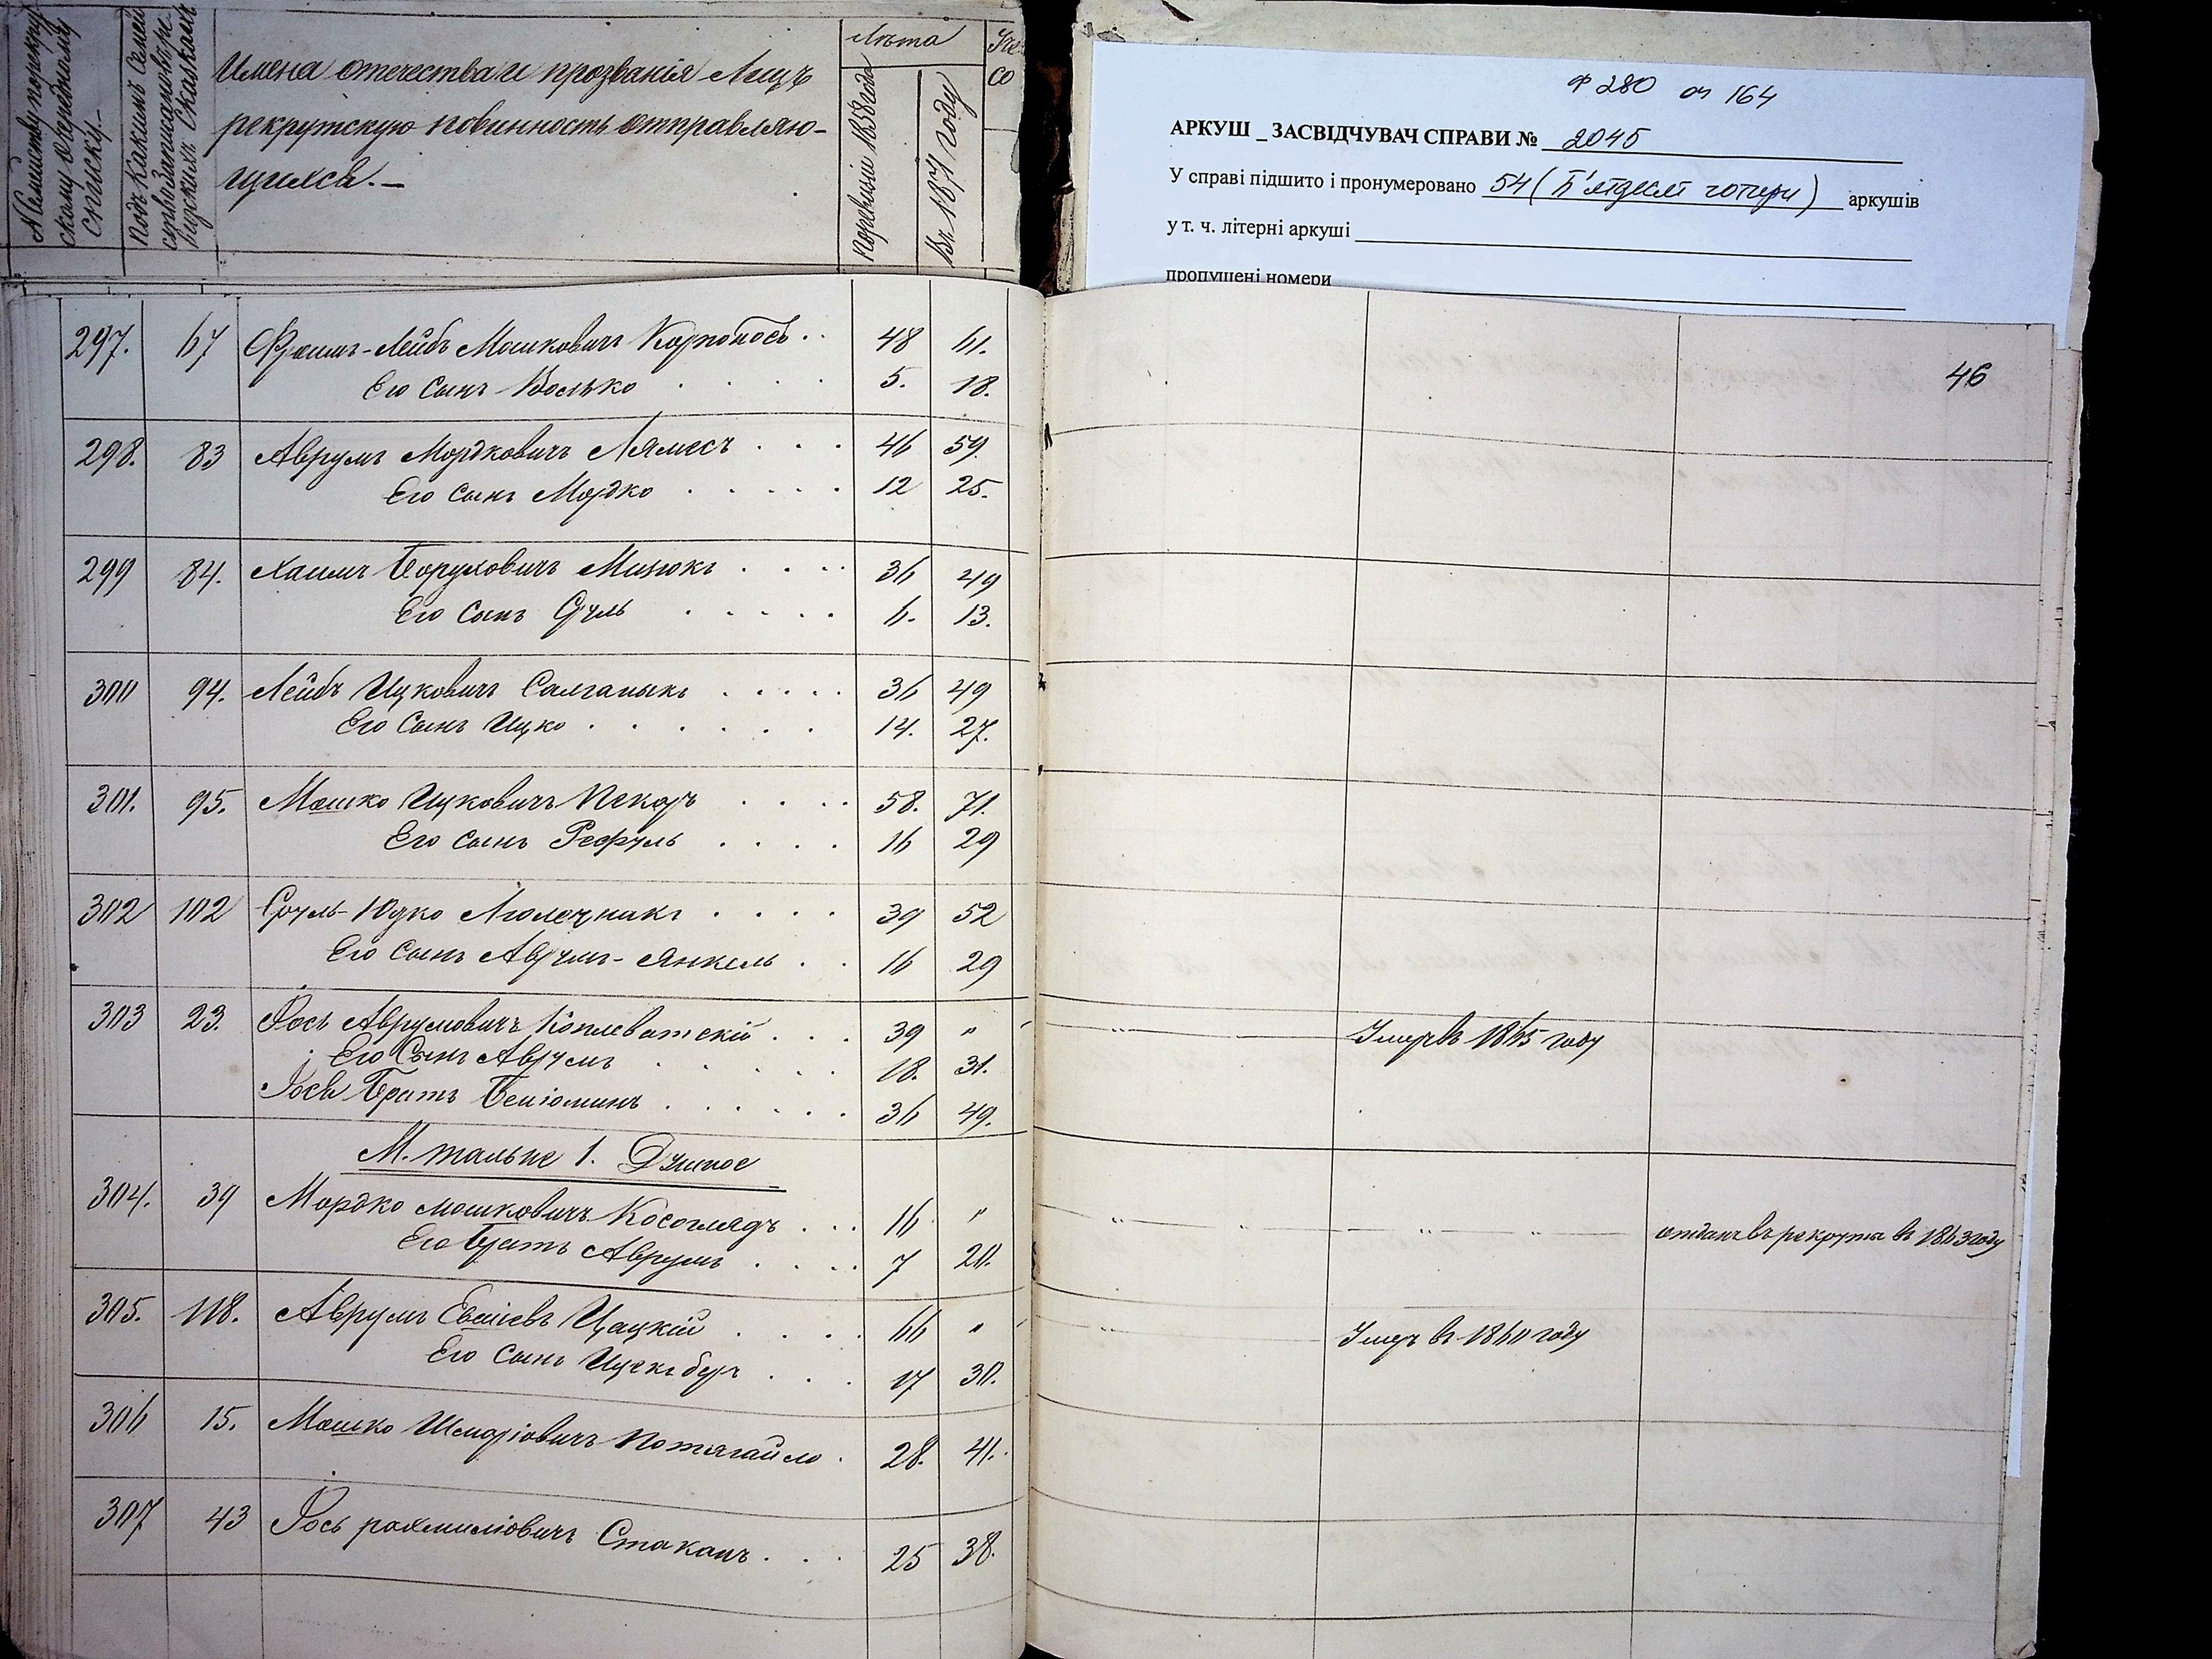 № Семейству порекрут
скому очередному
списку.-
Подъ Какимъ Семей
Сказкамъ
Имена отечества и прозванія Лицъ
рекрутскую повинность отправляю-
щихся.-
Лѣта
поревизіи 1858 года
Въ 1871 году
со
Ф 280 оп 164
АРКУШ _ ЗАСВІДЧУВАЧ СПРАВИ № 2045
У справі підшито і пронумеровано 54 (П'ятдесят чотири) аркушів
у т. ч. літерні аркуші
пропущені номери
46
297. 67 Фроимъ-Лейбъ Мошковичъ Корпоносъ . . 48 61.
Его Сынъ Волько . . . . 5. 18.
298. 83 Аврумъ Мордковичъ Лямесъ . . . 46 59.
Его Сынъ Мордко . . . . . 12 25.
299 84. Хаимъ Боруховичъ Мицюкъ . . . . 36 49
Его Сынъ Сруль . . . . . 6. 13.
300 94. Лейбъ Ицковичъ Салганыкъ . . . . . 36 49
Его Сынъ Ицко . . . . . . 14. 27.
301. 95. Мошко Ицковичъ Пекарь . . . . 58. 71.
Его Сынъ Рефуль . . . . 16 29
302 102 Сруль-Юдко Люлечникъ . . . . 39 52
Его Сынъ Аврумъ-Янкель . . 16 29
303 23. Іось Аврумовичъ Коплеватскій . . . 39 " " Умеръ въ 1865 году
Его Сынъ Аврумъ . . . . . 18. 31.
Іося Братъ Беніоминъ . . . . . . 36 49.
М. Тальне 1. Душное
304. 39 Мордко Мошковичъ Косоглядъ . . . 16 " " " " " отданъ въ рекруты въ 1863 году
Его Братъ Аврумъ . . . . 7 20.
305. 118. Аврумъ Евсіевъ Цацкій . . . . 66 " " Умеръ въ 1860 году
Его Сынъ Ицекъ беръ . . . 17 30.
306 15. Мошко Шмаріовичъ Потягайло . 28. 41.
307 43 Іось рахмиліовичъ Стаканъ . . . 25 38.